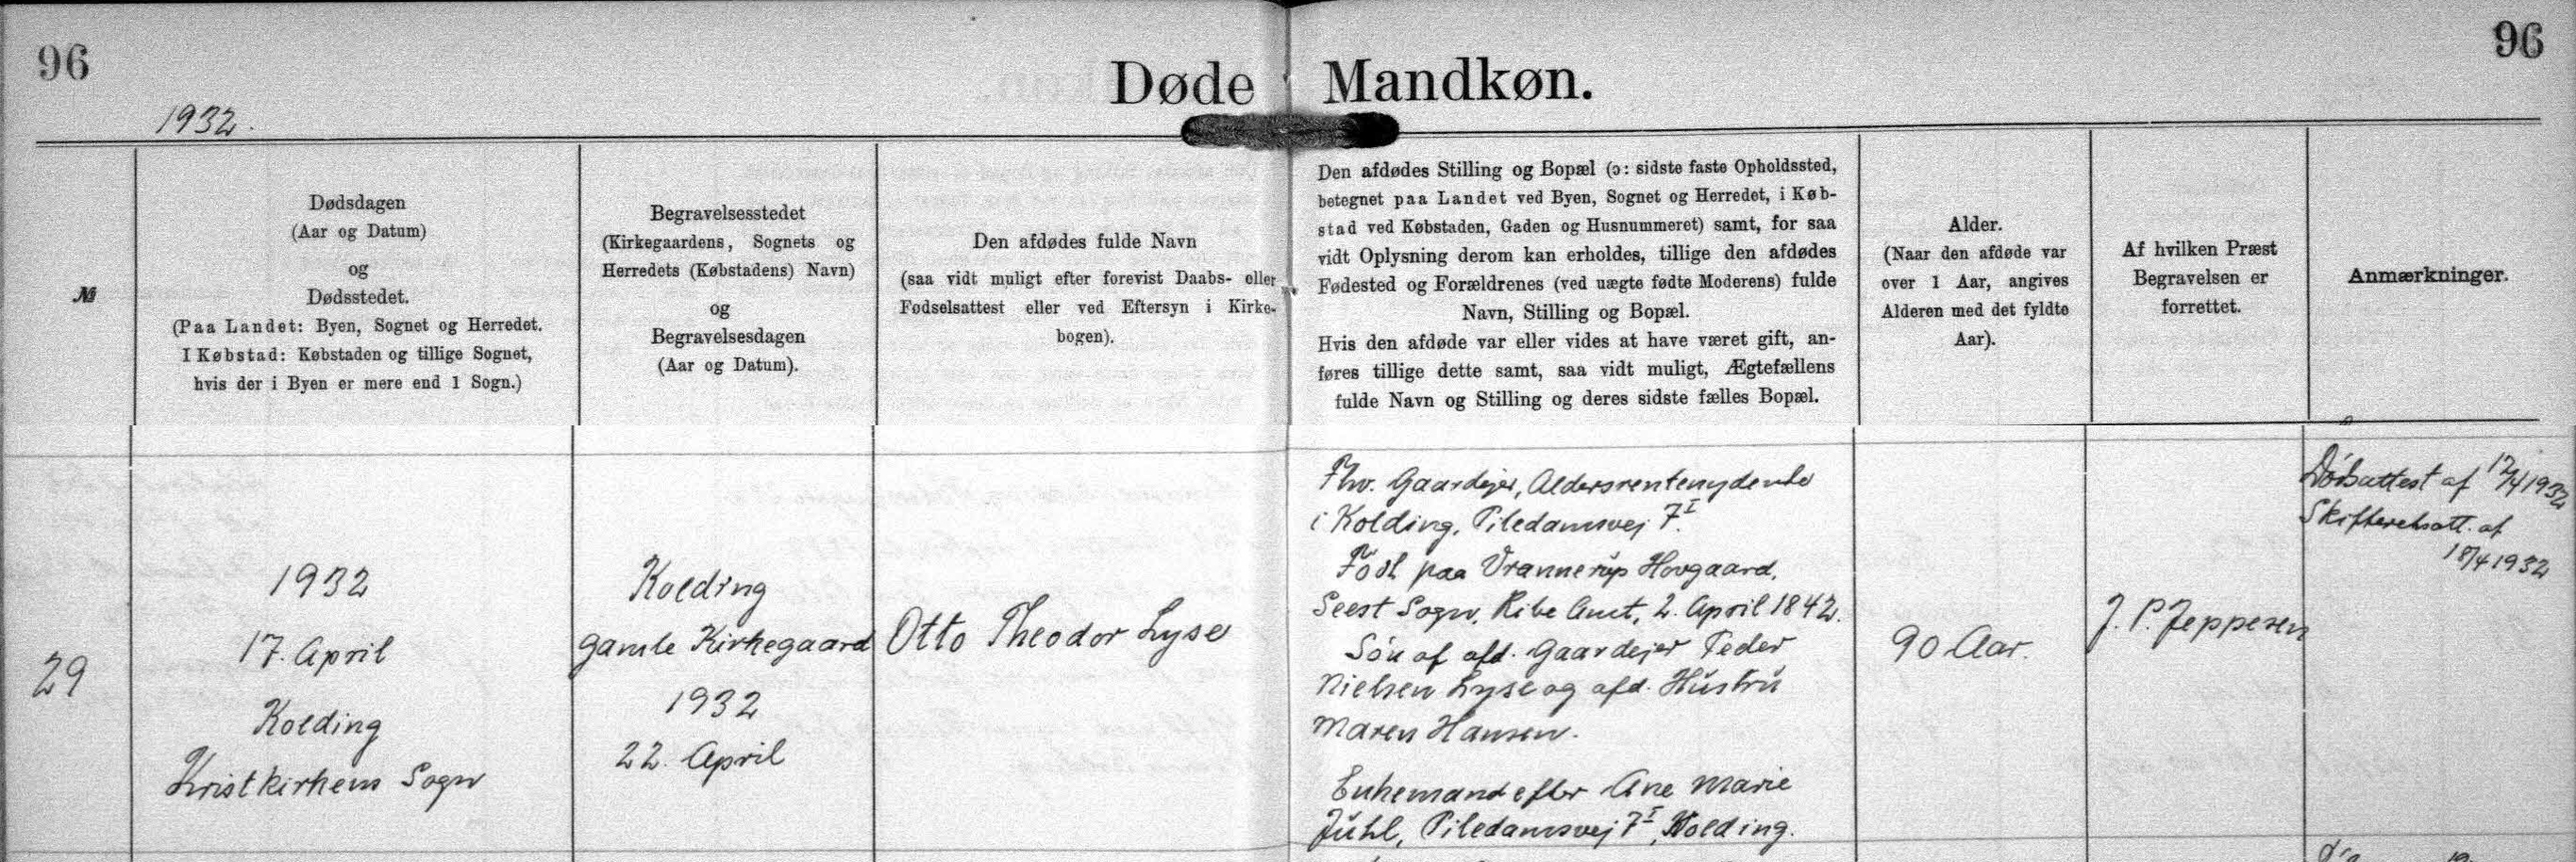 96
96
Døde Mandkøn.
1932.
№
Dødsdagen
(Aar og Datum)
og
Dødsstedet.
(Paa Landet: Byen, Sognet og Herredet.
I Købstad: Købstaden og tillige Sognet,
hvis der i Byen er mere end 1 Sogn.)
Begravelsesstedet
(Kirkegaardens, Sognets og
Herredets (Købstadens) Navn)
og
Begravelsesdagen
(Aar og Datum).
Den afdødes fulde Navn
(saa vidt muligt efter forevist Daabs- eller
Fødselsattest eller ved Eftersyn i Kirke-
bogen).
Den afdødes Stilling og Bopæl (ɔ: sidste faste Opholdssted,
betegnet paa Landet ved Byen, Sognet og Herredet, i Køb-
stad ved Købstaden, Gaden og Husnummeret) samt, for saa
vidt Oplysning derom kan erholdes, tillige den afdødes
Fødested og Forældrenes (ved uægte fødte Moderens) fulde
Navn, Stilling og Bopæl.
Hvis den afdøde var eller vides at have været gift, an-
føres tillige dette samt, saa vidt muligt, Ægtefællens
fulde Navn og Stilling og deres sidste fælles Bopæl.
Alder.
(Naar den afdøde var
over 1 Aar, angives
Alderen med det fyldte
Aar).
Af hvilken Præst
Begravelsen er
forrettet.
Anmærkninger.
29
1932
17. April
Kolding
Kristkirkens Sogn
Kolding
gamle Kirkegaard
1932
22. April
Otto Theodor Lyse
Fhv. Gaardejer, Aldersrentenydende
i Kolding, Piledamsvej 7.I
Født paa Vrannerup Hovgaard,
Seest Sogn, Ribe Amt, 2. April 1842.
Søn af afd. Gaardejer Peder
Nielsen Lyse og afd. Hustru
Maren Hansen.
Enkemand efter Ane Marie
Juhl, Piledamsvej 7I, Kolding.
90 Aar.
J. P. Jeppesen
Dødsattest af 17/4 1932
Skifteretsatt. af
18/4 1932